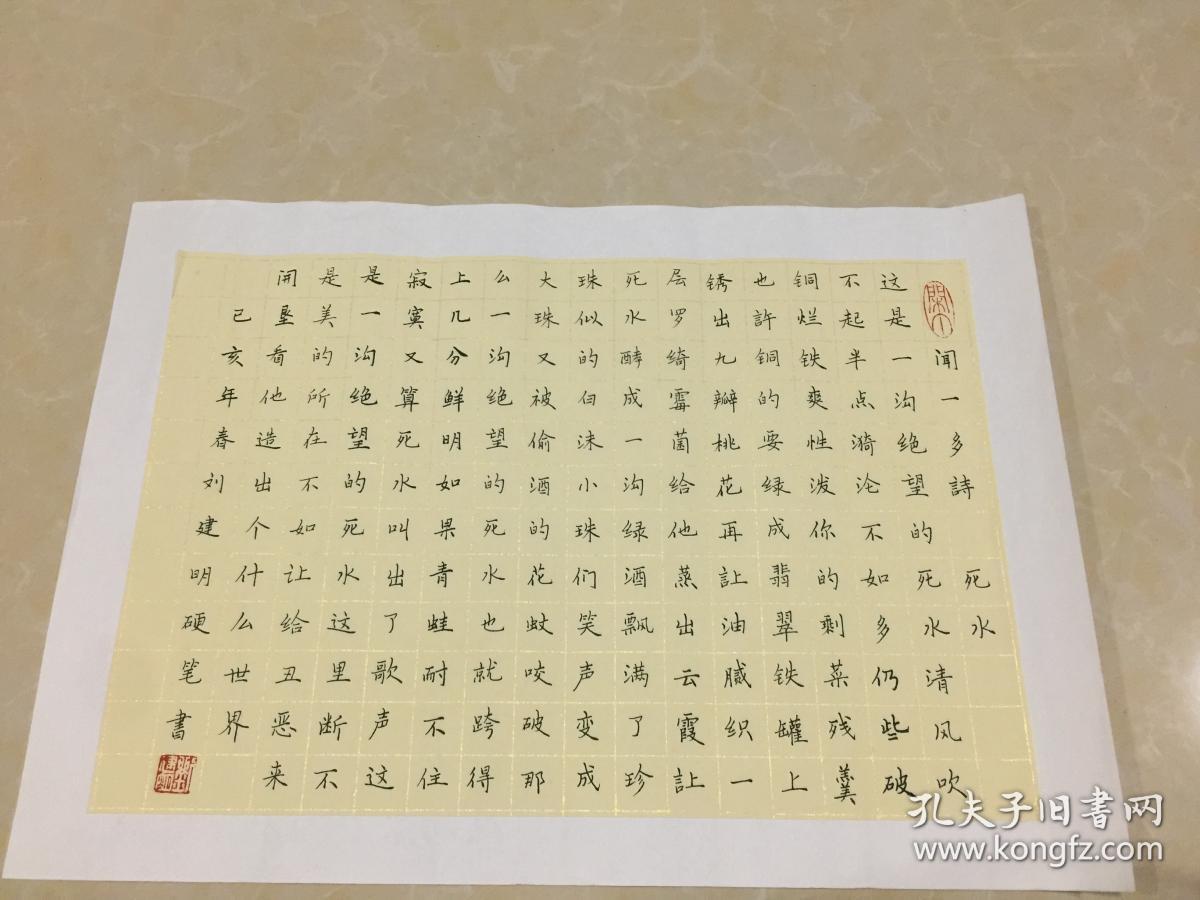 闻一多詩 死水
这是一沟绝望的死水清风吹
不起半点漪沦不如多仍些破
铜烂铁爽性泼你的剩菜残羹
也許铜的要绿成翡翠铁罐上
锈出九瓣桃花再让油腻织一
层罗绮霉菌给他蒸出云霞让
死水酵成一沟绿酒飘满了珍
珠似的白沫小珠们笑声变成
大珠又被偷酒的花蚊咬破那
么一沟绝望的死水也就跨得
上几分鲜明如果青蛙耐不住
寂寞又算死水叫出了歌声这
是一沟绝望的死水这里断不
是美的所在不如让给丑恶来
开垦看他造出个什么世界
己亥年春刘建明硬笔書
孔夫子旧书网
www.kongfz.com